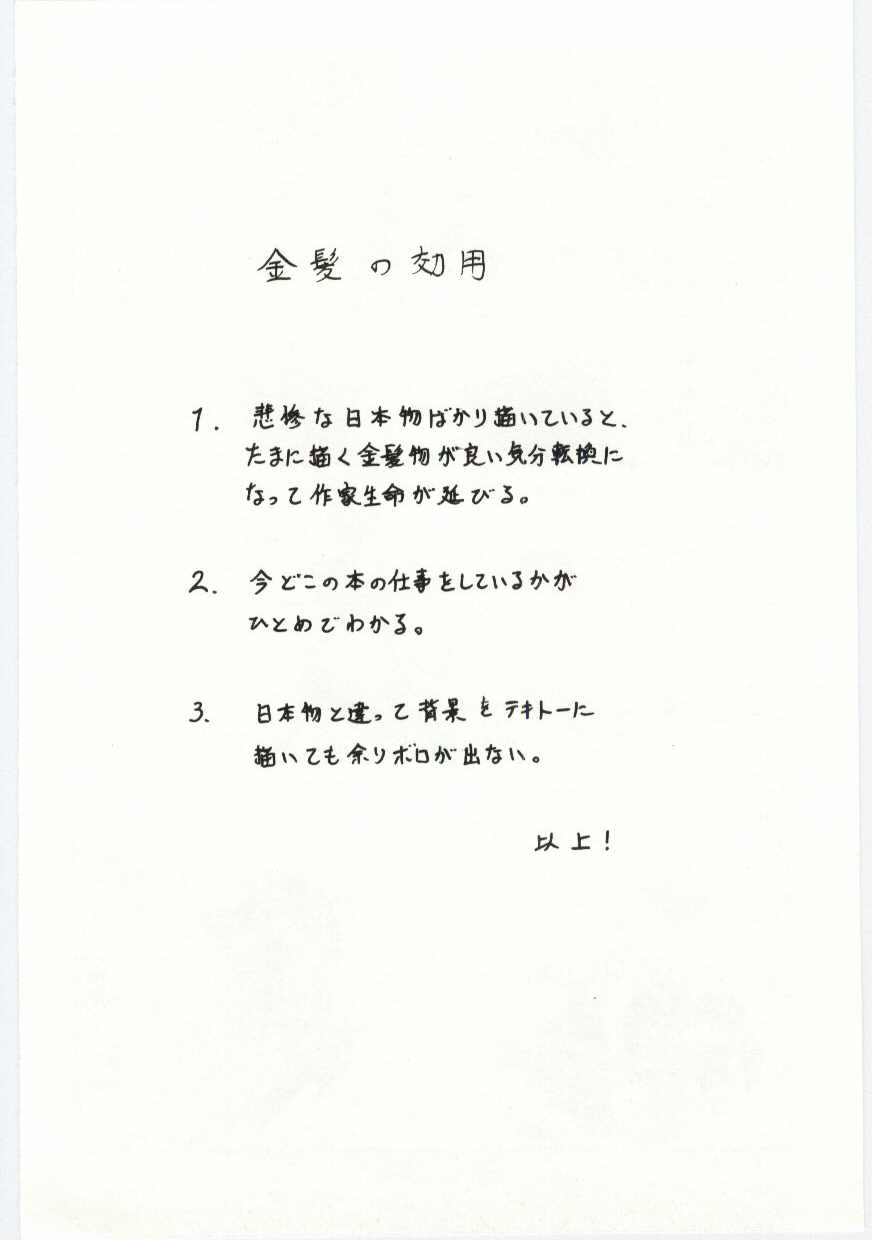 金髪の効用
1. 悲惨な日本物ばかり描いていると、
たまに描く金髪物が良い気分転換に
なって作家生命が延びる。
2. 今どこの本の仕事をしているかが
ひとめでわかる。
3. 日本物と違って背景をテキトーに
描いても余りボロが出ない。
以上!